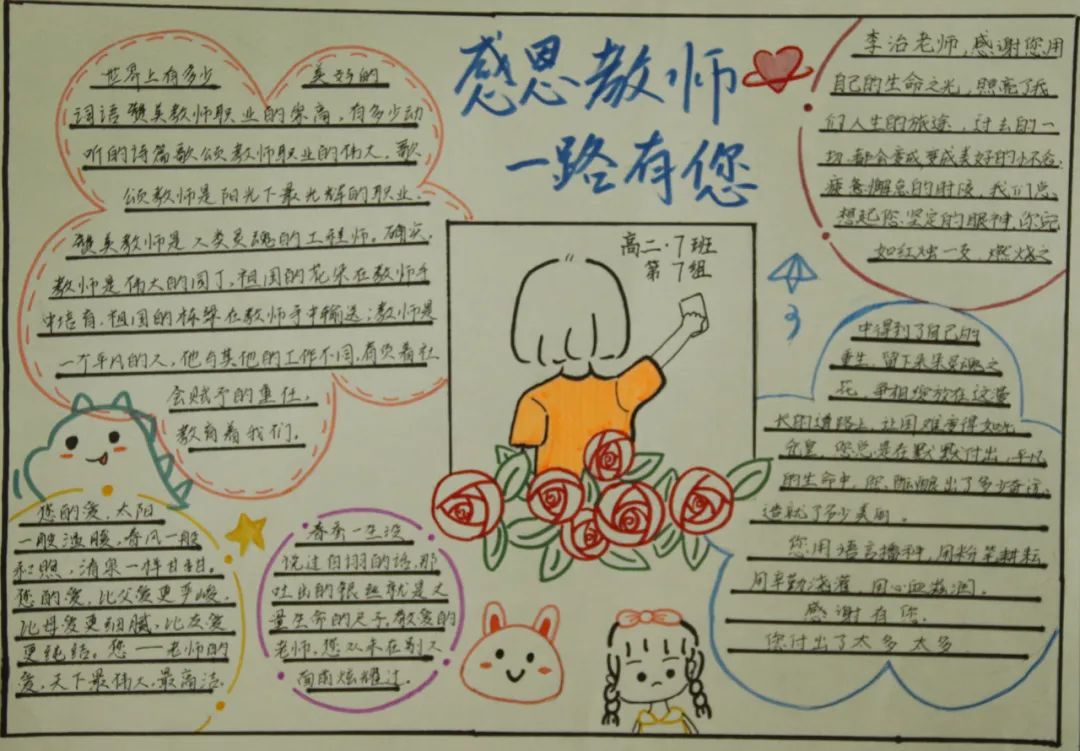 感恩教师
一路有您
世界上有多少 美好的
词语赞美教师职业的崇高，有多少动
听的诗篇歌颂教师职业的伟大。歌
颂教师是阳光下最光辉的职业.
赞美教师是人类灵魂的工程师。确实,
教师是伟大的园丁,祖国的花朵在教师手
中培育,祖国的栋梁在教师手中输送;教师是
一个平凡的人,他与其他的工作不同,肩负着社
会赋予的重任,
教育着我们。
李治老师,感谢您用
自己的生命之光,照亮了我
们人生的旅途,过去的一
切,都会变成,变成美好的
疲惫懈怠的时候,我们总
想起您坚定的眼神,你宛
如红烛一支,燃烧之
高二·7班
第7组
中得到了自己的
重生,留下朵朵灵魂之
花,争相绽放在这漫
长的道路上,让困难变得如此
您总是在默默付出,平凡
的生命中,您酝酿出了多少奇迹,
造就了多少美丽。
您用语言播种,用粉笔耕耘
用辛勤浇灌,用心血滋润。
感谢有您.
您付出了太多太多
您的爱,太阳
一般温暖,春风一般
和煦,清泉一样甘甜。
您的爱,比父爱更严峻,
比母爱更细腻,比友爱
更纯洁。您——老师的
爱,天下最伟大,最高洁.
春蚕一生没
说过自诩的话,那
吐出的银丝就是丈
量生命的尺子,敬爱的
老师,您从未在别人
面前炫耀过.